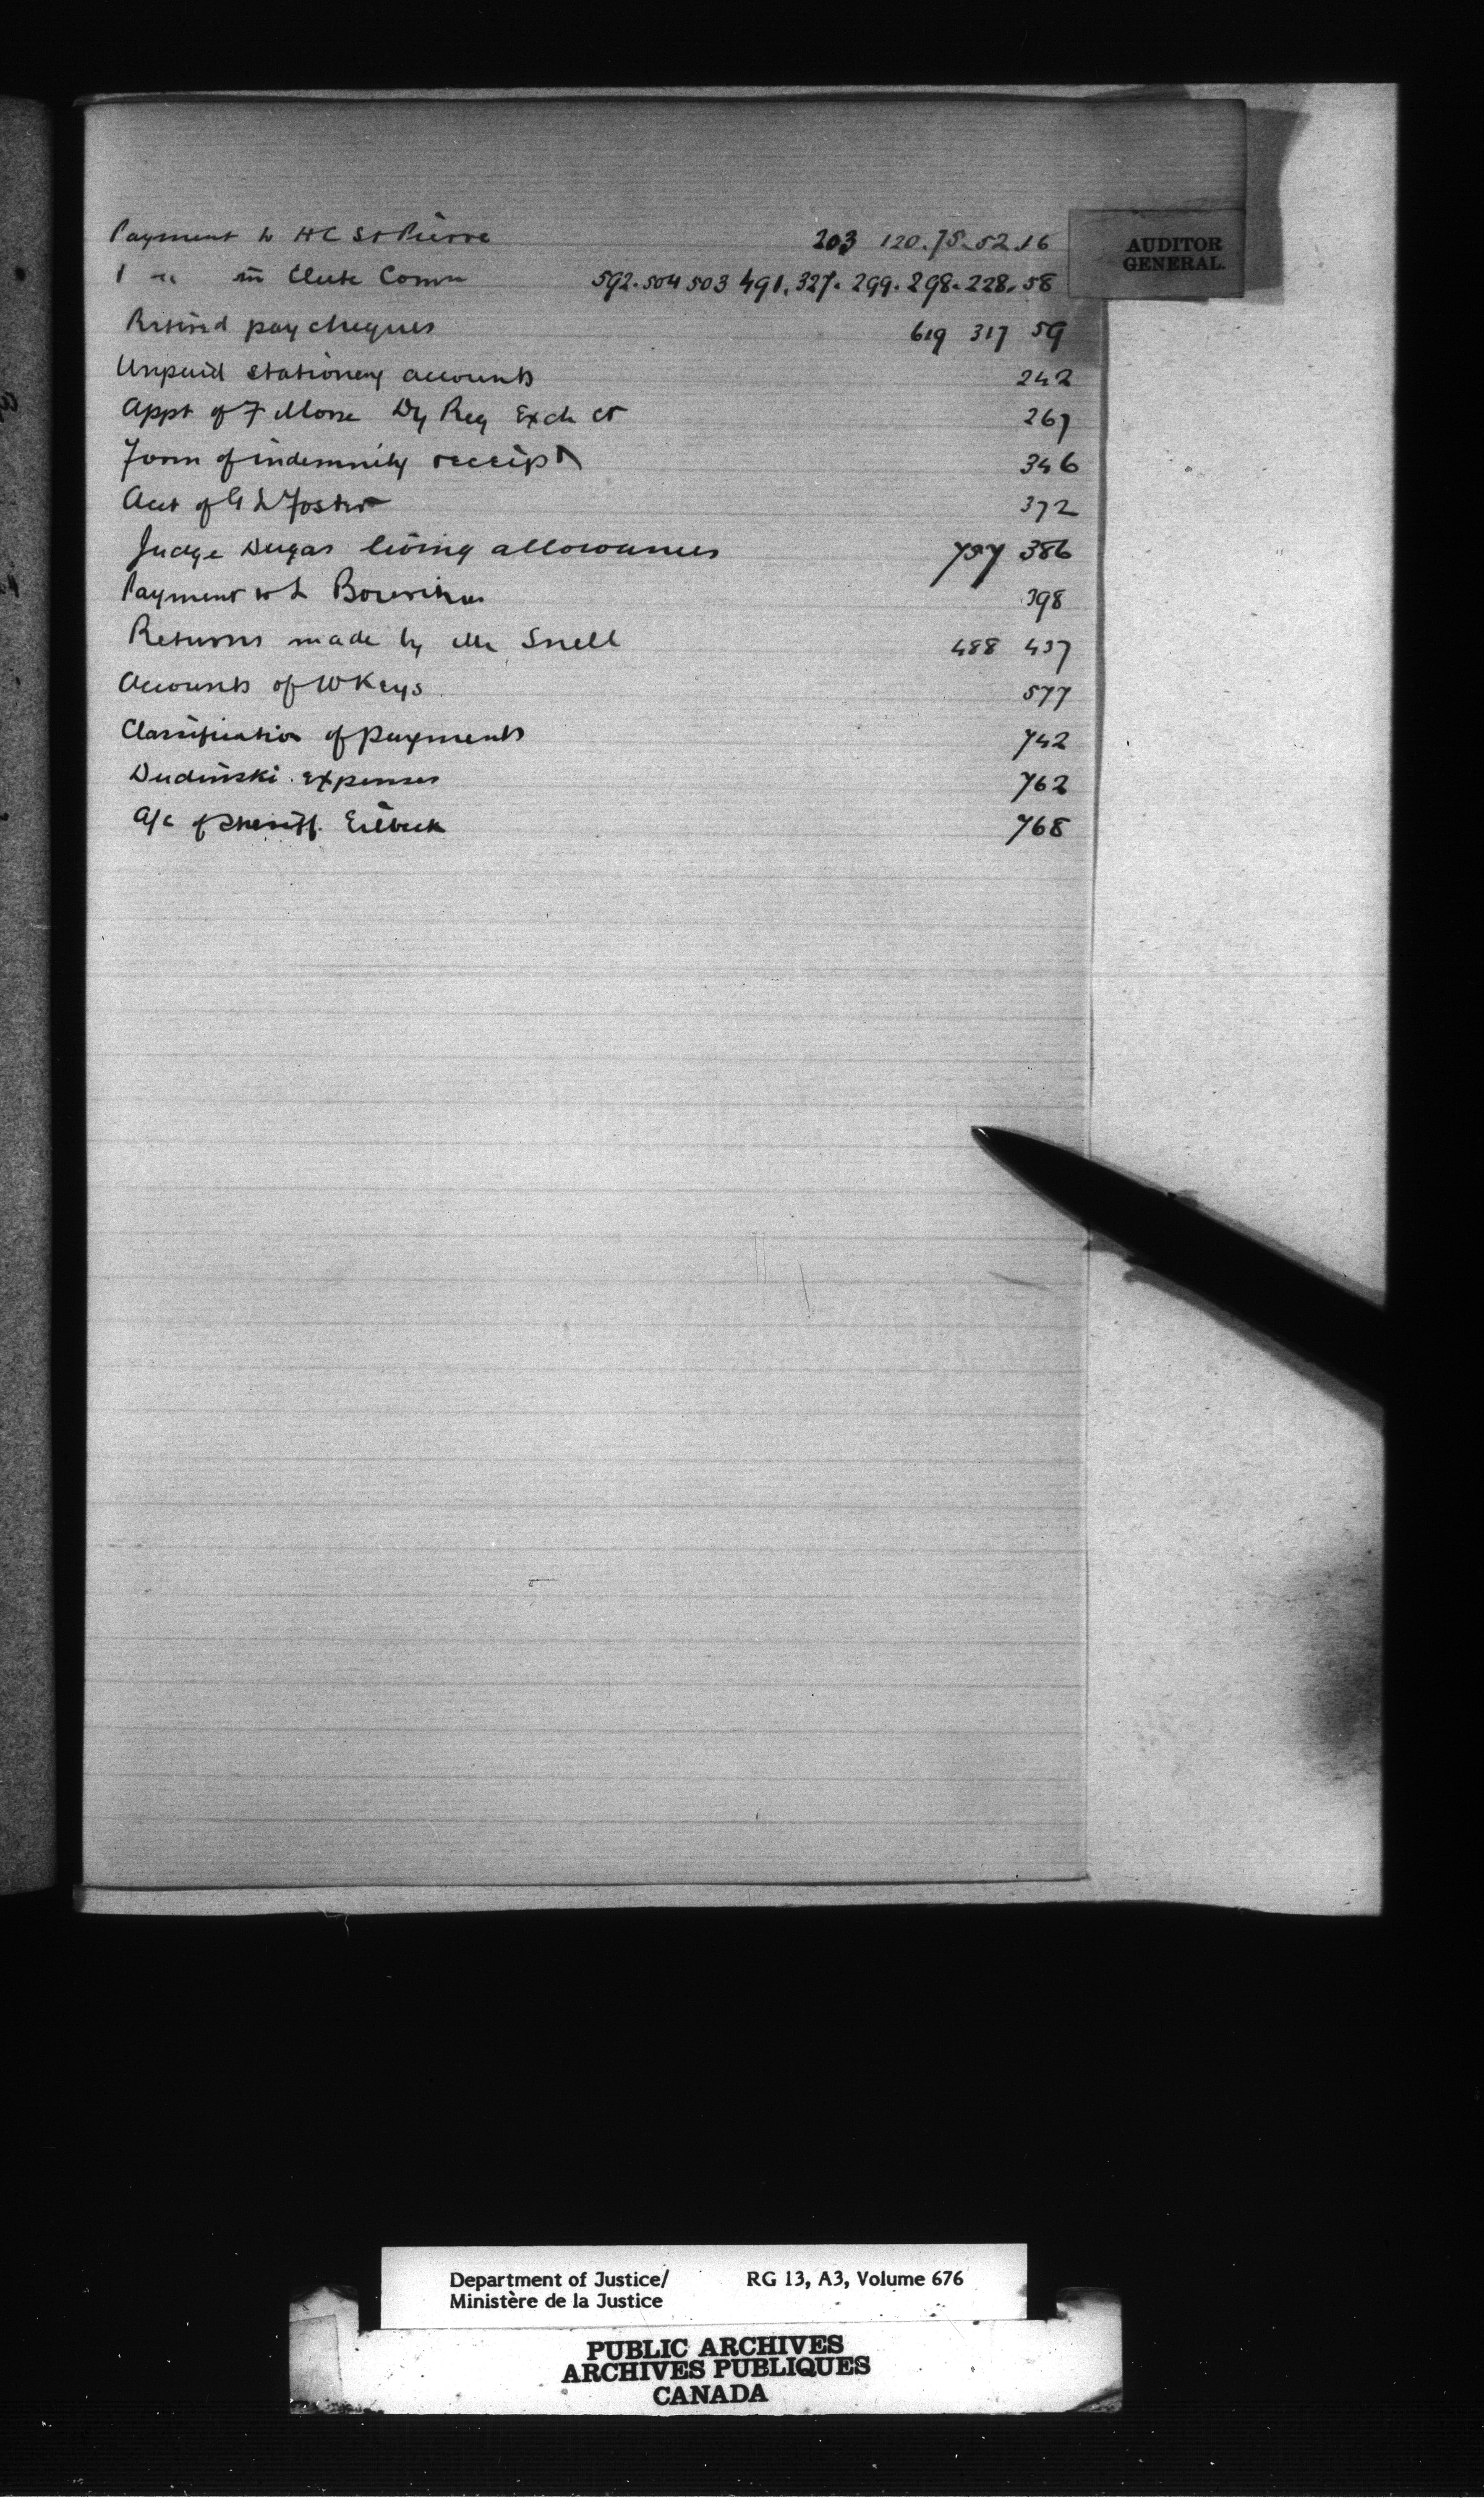 AUDITOR
GENERAL.
Payment to H C St Pierre 203 120. 75. 52. 16
in Clute Comn 592. 504 503 491. 327. 299. 298. 228. 58
Retired pay cheques 619 317 59
Unpaid stationery accounts 242
Appt of F Morse Dy Reg Exch Ct 267
Form of indemnity receipt 346
Acct of G L Foster 372
Judge Dugas living allowances 757 386
Payment to L 398
Returns made by Mr Snell 488 437
Accounts of W Keys 577
Classification of payments 742
Dudinski expenses 762
A/c of Sheriff Eilbeck 768
Department of Justice/ RG 13, A3, Volume 676
Ministère de la Justice
PUBLIC ARCHIVES
ARCHIVES PUBLIQUES
CANADA